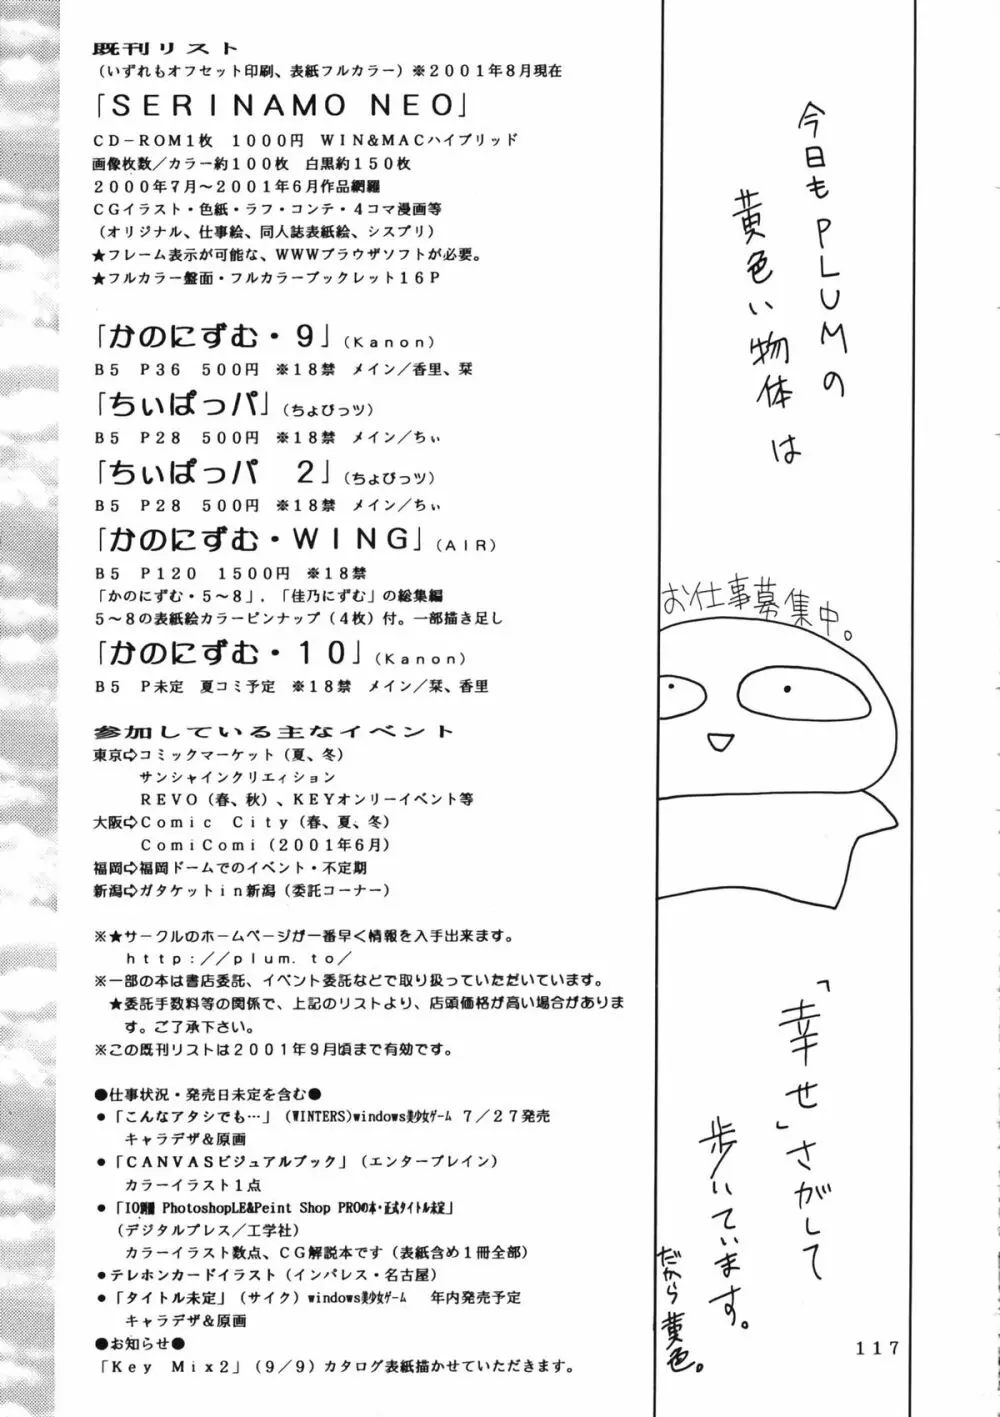 既刊リスト
（いずれもオフセット印刷、表紙フルカラー）※２００１年８月現在
「ＳＥＲＩＮＡＭＯ ＮＥＯ」
ＣＤ－ＲＯＭ１枚　１０００円　ＷＩＮ&ＭＡＣハイブリッド
画像枚数／カラー約１００枚　白黒約１５０枚
２０００年７月～２００１年６月作品網羅
ＣＧイラスト・色紙・ラフ・コンテ・４コマ漫画等
（オリジナル、仕事絵、同人誌表紙絵、シスプリ）
★フレーム表示が可能な、ＷＷＷブラウザソフトが必要。
★フルカラー盤面・フルカラーブックレット１６Ｐ
「かのにずむ・９」（Ｋａｎｏｎ）
Ｂ５　Ｐ３６　５００円　※１８禁　メイン／香里、栞
「ちぃぱっパ」（ちょびっツ）
Ｂ５　Ｐ２８　５００円　※１８禁　メイン／ちぃ
「ちぃぱっパ　２」（ちょびっツ）
Ｂ５　Ｐ２８　５００円　※１８禁　メイン／ちぃ
「かのにずむ・ＷＩＮＧ」（ＡＩＲ）
Ｂ５　Ｐ１２０　１５００円　※１８禁
「かのにずむ・５～８」，「佳乃にずむ」の総集編
５～８の表紙絵カラーピンナップ（４枚）付。一部描き足し
「かのにずむ・１０」（Ｋａｎｏｎ）
Ｂ５　Ｐ未定　夏コミ予定　※１８禁　メイン／栞、香里
参加している主なイベント
東京⇨コミックマーケット（夏、冬）
サンシャインクリエィション
ＲＥＶＯ（春、秋）、ＫＥＹオンリーイベント等
大阪⇨Ｃｏｍｉｃ　Ｃｉｔｙ（春、夏、冬）
ＣｏｍｉＣｏｍｉ（２００１年６月）
福岡⇨福岡ドームでのイベント・不定期
新潟⇨ガタケットｉｎ新潟（委託コーナー）
※★サークルのホームページが一番早く情報を入手出来ます。
ｈｔｔｐ：／／ｐｌｕｍ．ｔｏ／
※一部の本は書店委託、イベント委託などで取り扱っていただいています。
★委託手数料等の関係で、上記のリストより、店頭価格が高い場合がありま
す。ご了承下さい。
※この既刊リストは２００１年９月頃まで有効です。
●仕事状況・発売日未定を含む●
●「こんなアタシでも…」（WINTERS)windows美少女ｹﾞｰﾑ ７／２７発売
キャラデザ＆原画
●「ＣＡＮＶＡＳビジュアルブック」（エンターブレイン）
カラーイラスト１点
PhotoshopLE&Peint Shop PROの本・正式タイトル未定」
（デジタルプレス／工学社）
カラーイラスト数点、ＣＧ解説本です（表紙含め１冊全部）
●テレホンカードイラスト（インパレス・名古屋）
●「タイトル未定」（サイク）windows美少女ｹﾞｰﾑ　年内発売予定
キャラデザ＆原画
●お知らせ●
「Ｋｅｙ　Ｍｉｘ２」（９／９）カタログ表紙描かせていただきます。
今日もPLUMの
黄色い物体は
お仕事募集中。
「幸せ」さがして
歩いています。
だから黄色。
１１７